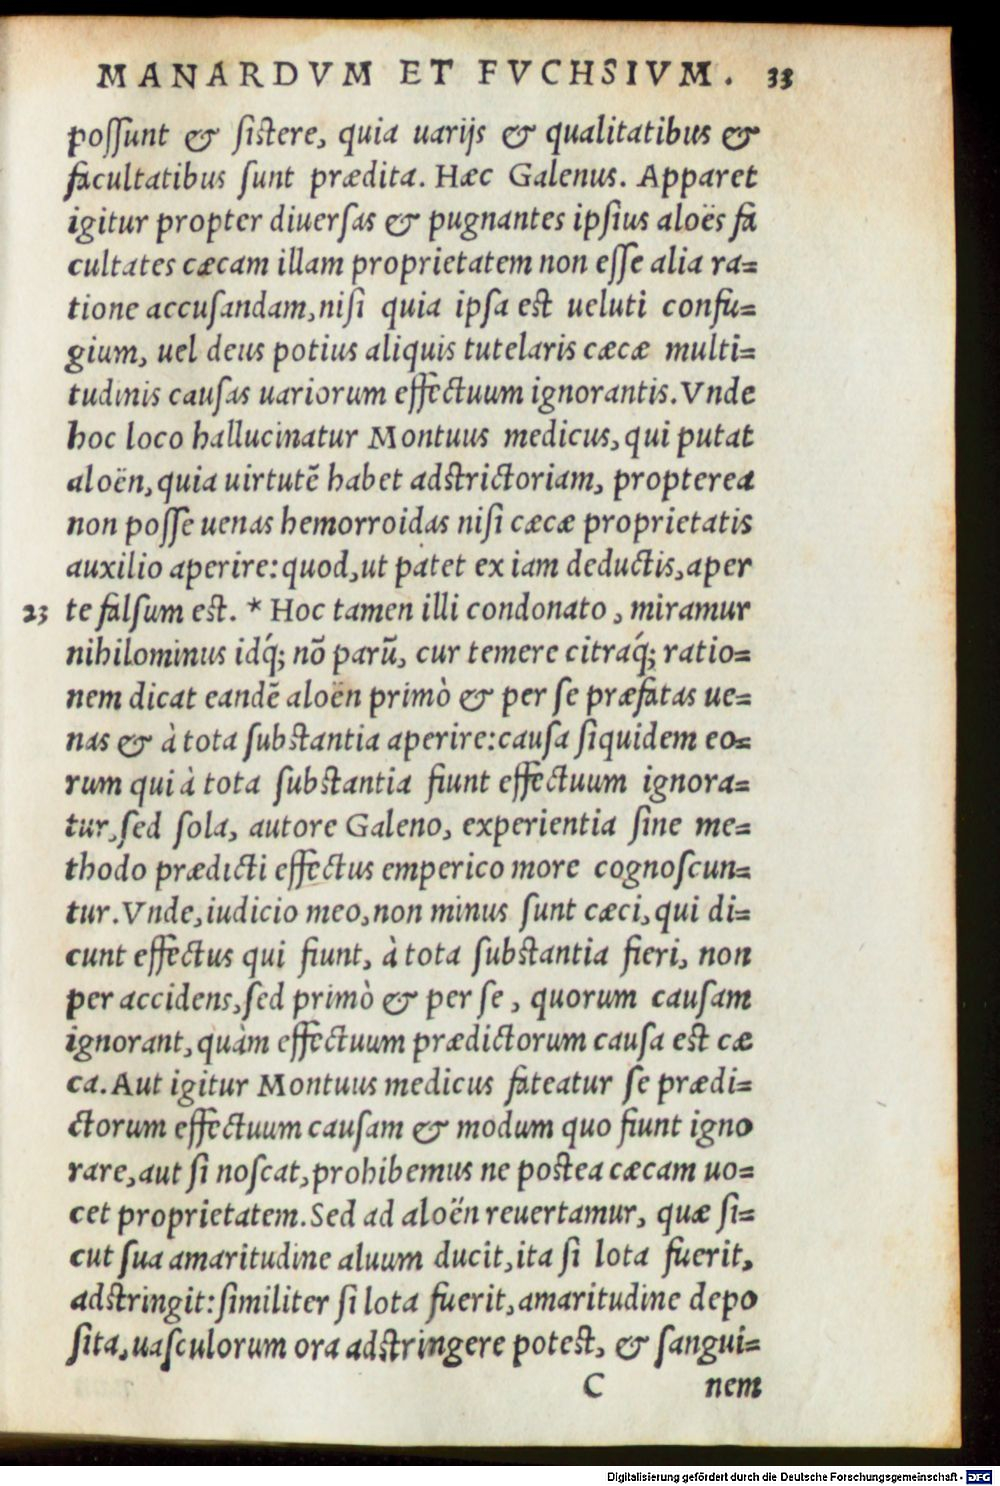 MANARDVM ET FVCHSIVM. 33
possunt & sistere, quia uarijs & qualitatibus &
facultatibus sunt prædita. Hæc Galenus. Apparet
igitur propter diuersas & pugnantes ipsius aloës fa
cultates cæcam illam proprietatem non esse alia ra=
tione accusandam, nisi quia ipsa est ueluti confu=
gium, uel deus potius aliquis tutelaris cæcæ multi=
tudinis causas uariorum effectuum ignorantis. Vnde
hoc loco hallucinatur Montuus medicus, qui putat
aloën, quia uirtutē habet adstrictoriam, propterea
non posse uenas hemorroidas nisi cæcæ proprietatis
auxilio aperire: quod, ut patet ex iam deductis, aper
23 te falsum est. * Hoc tamen illi condonato, miramur
nihilominus idq́; nō parū, cur temere citraq́; ratio=
nem dicat eandē aloën primò & per se præfatas ue=
nas & à tota substantia aperire: causa siquidem eo=
rum qui à tota substantia fiunt effectuum ignora=
tur, sed sola, autore Galeno, experientia sine me=
thodo prædicti effectus emperico more cognoscun=
tur. Vnde, iudicio meo, non minus sunt cæci, qui di=
cunt effectus qui fiunt, à tota substantia fieri, non
per accidens, sed primò & per se, quorum causam
ignorant, quàm effectuum prædictorum causa est cæ
ca. Aut igitur Montuus medicus fateatur se prædi=
ctorum effectuum causam & modum quo fiunt igno
rare, aut si noscat, prohibemus ne postea cæcam uo=
cet proprietatem. Sed ad aloën reuertamur, quæ si=
cut sua amaritudine aluum ducit, ita si lota fuerit,
adstringit: similiter si lota fuerit, amaritudine depo
sita, uasculorum ora adstringere potest, & sangui=
C nem
Digitalisierung gefördert durch die Deutsche Forschungsgemeinschaft - DFG